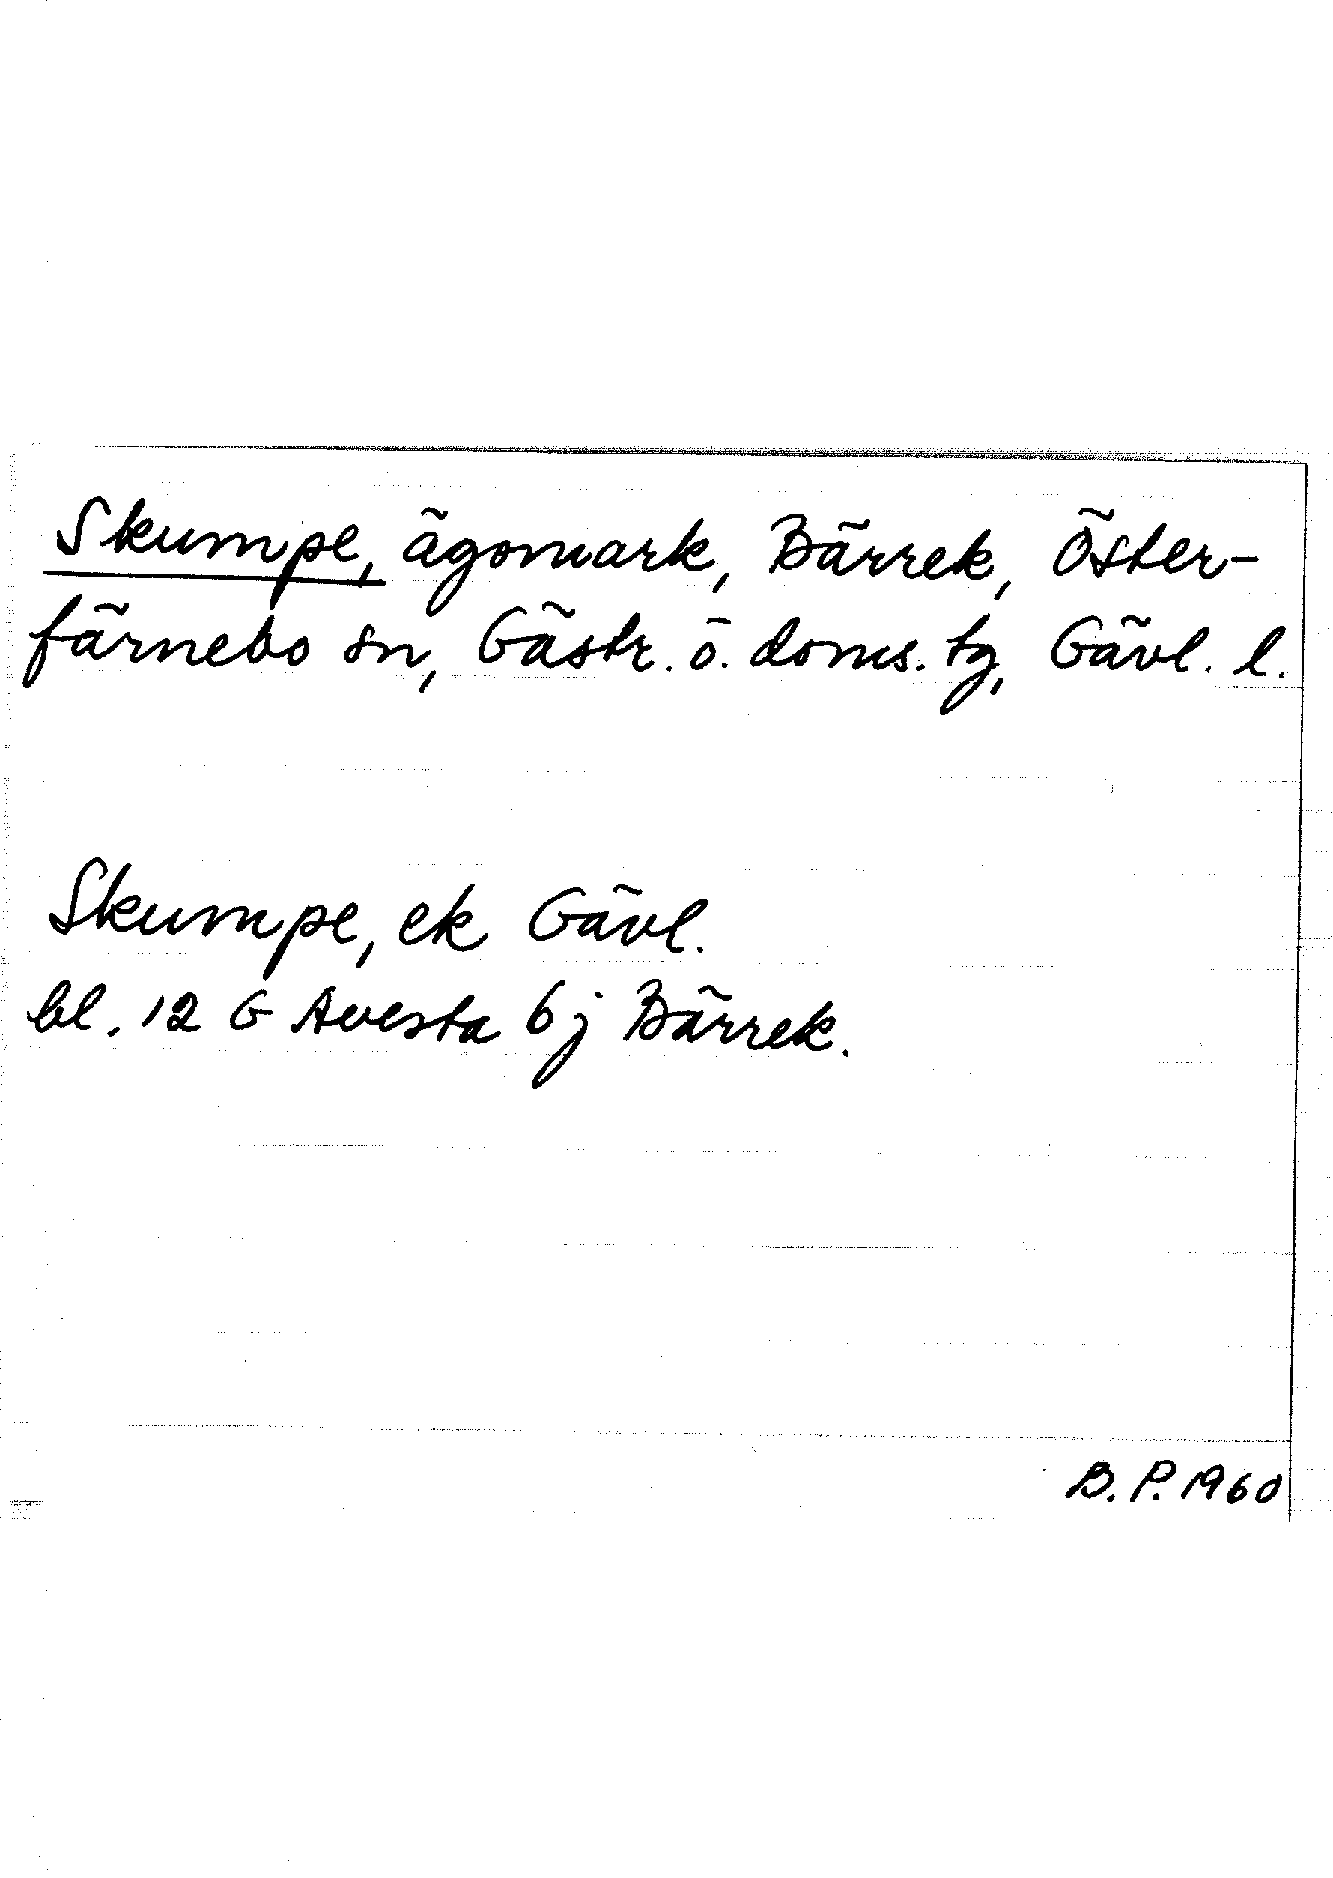 Skumpe, ägomark, Bärrek, Öster-
färnebo sn, Gästr. ö. doms. tg, Gävl. l.
Skumpe, ek Gävl.
bl. 12 G Avesta 6 j Bärrek.
B. P. 1960